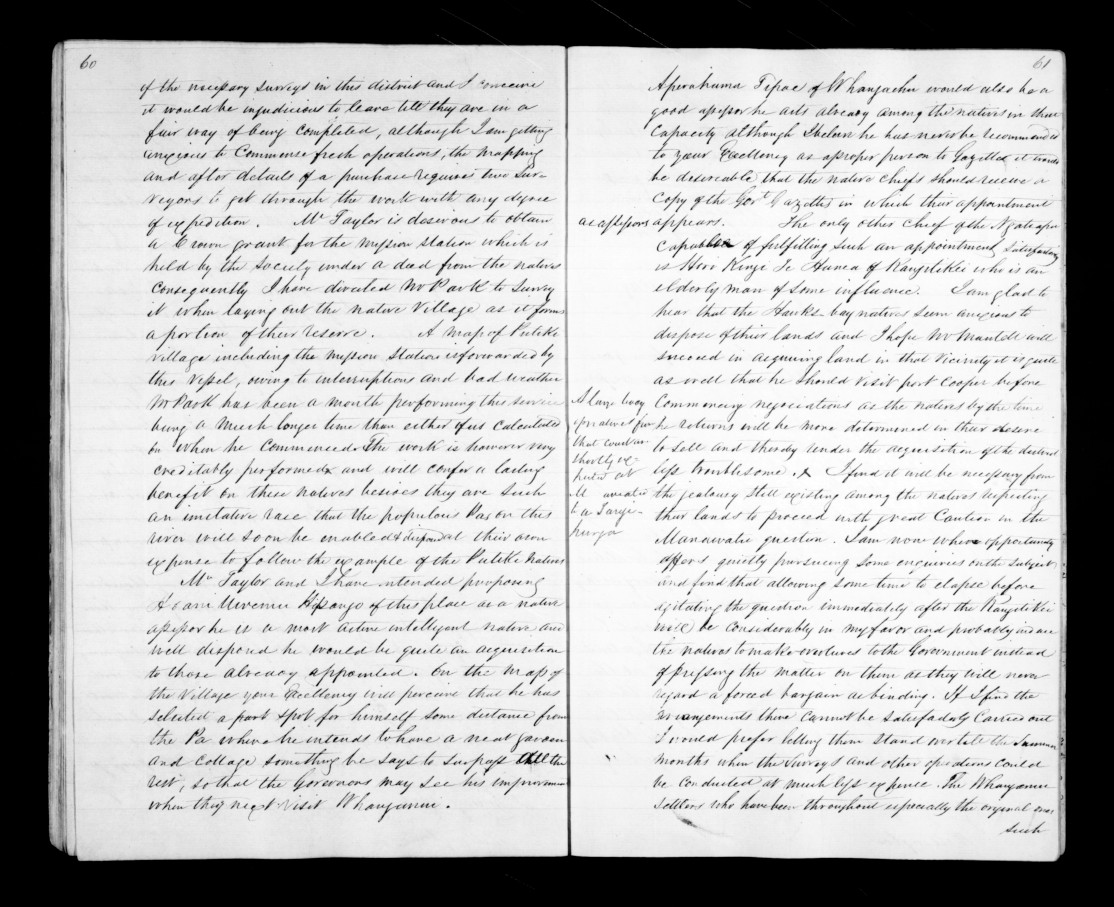 60
of the necessary surveys in this district and I conceive
it would be injudicious to leave till they are in a
fair way of being completed, although I am getting
anxious to Commence fresh operations, the mapping
and after details of a purchase requires two Sur-
veyors to get through the work with any degree
of expedition. Mr Taylor is desirous to obtain
a Crown grant for the Mission Station which is
held by the Society under a deed from the natives
Consequently I have directed Mr Park to Survey
it when laying out the native Village as it forms
a portion of their reserve. A map of Putiki
Village including the Mission Station is forwarded by
this Vessel, owing to interruptions and bad weather
Mr Park has been a month performing this service
being a much longer time than either of us calculated
on when he commenced. The work is however very
creditably performed and will confer a lasting
benefit on these natives besides they are such
an imitative race that the populous Pas on this
river will soon be enabled & disposed at their own
expense to follow the example of the Putiki natives
Mr Taylor and I have intended proposing
Hipango of this place as a native
assessor he is a most active intelligent native and
well disposed he would be quite an acquisition
to those already appointed. On the map of
the Village your Excellency will perceive that he has
selected a spot for himself some distance from
the Pa where he intends to have a neat garden
and Cottage something he says to surpass all the
rest, so that the Governors may see his improvements
when they next visit Whanganui.
61
Aperahama Tipae of Whangaehu would also be a
good assessor he acts already among the natives in that
Capacity although I believe he has never be recommended
to your Excellency as a proper person to Gazette it would
be desireable that the native Chiefs should receive a
Copy of the Govt Gazettes in which their appointment
as assessors appears. The only other Chief of the Ngatiapa
Capable of fulfilling such an appointment satisfactorily
is Hori Kingi Te Hanea of Rangitikei who is an
elderly man of some influence. I am glad to
hear that the Hawks bay natives seem anxious to
dispose of their lands and I hope Mr Mantell will
succeed in acquiring land in that vicinity it is quite
as well that he should visit port Cooper before
Commencing negociations as the natives by the time
he returns will be more determined in their desire
to sell and thereby render the acquisition of the district
less troublesome. x I find it will be necessary from
the jealousy still existing among the natives respecting
their lands to proceed with great Caution in the
Manawatu question. I am now where opportunity
offers quietly pursuing some enquiries on the subject
and find that allowing some time to elapse before
agitating the question immediately after the Rangitikei
will be considerably in my favor and probably induce
the natives to make overtures to the Government instead
of pressing the matter on them as they will never
regard a forced bargain as binding. If I find the
arrangements there cannot be satisfactorily Carried out
I would prefer letting them stand over till the Summer
months when the surveys and other operations could
be conducted at much less expense. The Whanganui
settlers who have been throughout especially the original ones
such
A large body
of natives from
that coast are
shortly ex-
pected at